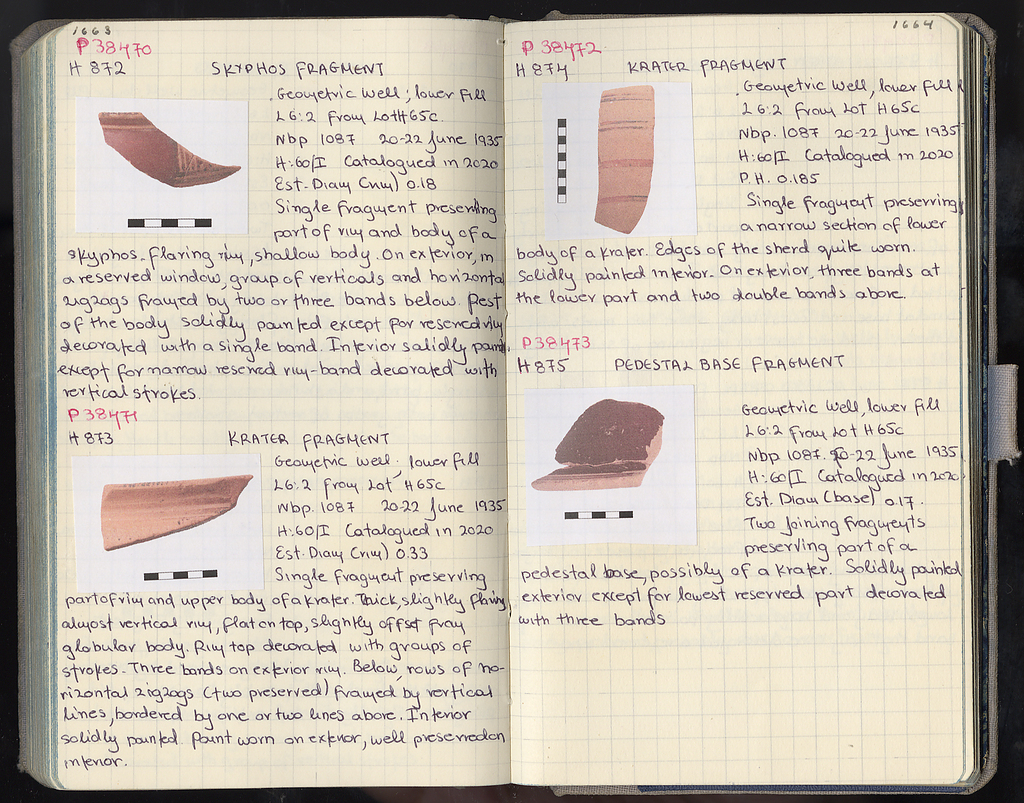 1663
P 38470
H 872 SKYPHOS FRAGMENT
Geometric Well, lower fill
L6:2 from Lot H65c.
Nbp. 1087 20-22 June 1935
H:60/I Catalogued in 2020
Est. Diam (rim) 0.18
Single fragment preserving
part of rim and body of a
skyphos. Flaring rim, shallow body. On exterior, in
a reserved window, group of verticals and horizontal
zigzags framed by two or three bands below. Rest
of the body solidly painted except for reserved rim
decorated with a single band. Interior solidly paint.
except for narrow reserved rim-band decorated with
vertical strokes.
P 38471
H 873 KRATER FRAGMENT
Geometric Well, lower fill
L6:2 from Lot H65c
Nbp. 1087 20-22 June 1935
H:60/I Catalogued in 2020
Est. Diam (rim) 0.33
Single fragment preserving
part of rim and upper body of a krater. Thick, slightly flaring,
almost vertical rim, flat on top, slightly offset from
globular body. Rim top decorated with groups of
strokes. Three bands on exterior rim. Below, rows of ho-
rizontal zigzags (two preserved) framed by vertical
lines, bordered by one or two lines above. Interior
solidly painted. Paint worn on exterior, well preserved on
interior.
1664
P 38472
H 874 KRATER FRAGMENT
Geometric Well, lower fill
L6:2 from Lot H65c
Nbp. 1087 20-22 June 1935
H:60/I Catalogued in 2020
P.H. 0.185
Single fragment preserving
a narrow section of lower
body of a krater. Edges of the sherd quite worn.
Solidly painted interior. On exterior, three bands at
the lower part and two double bands above.
P 38473
H 875 PEDESTAL BASE FRAGMENT
Geometric Well, lower fill
L6:2 from Lot H65c
Nbp 1087. 20-22 June 1935
H:60/I Catalogued in 2020
Est. Diam (base) 0.17.
Two joining fragments
preserving part of a
pedestal base, possibly of a krater. Solidly painted
exterior except for lowest reserved part decorated
with three bands